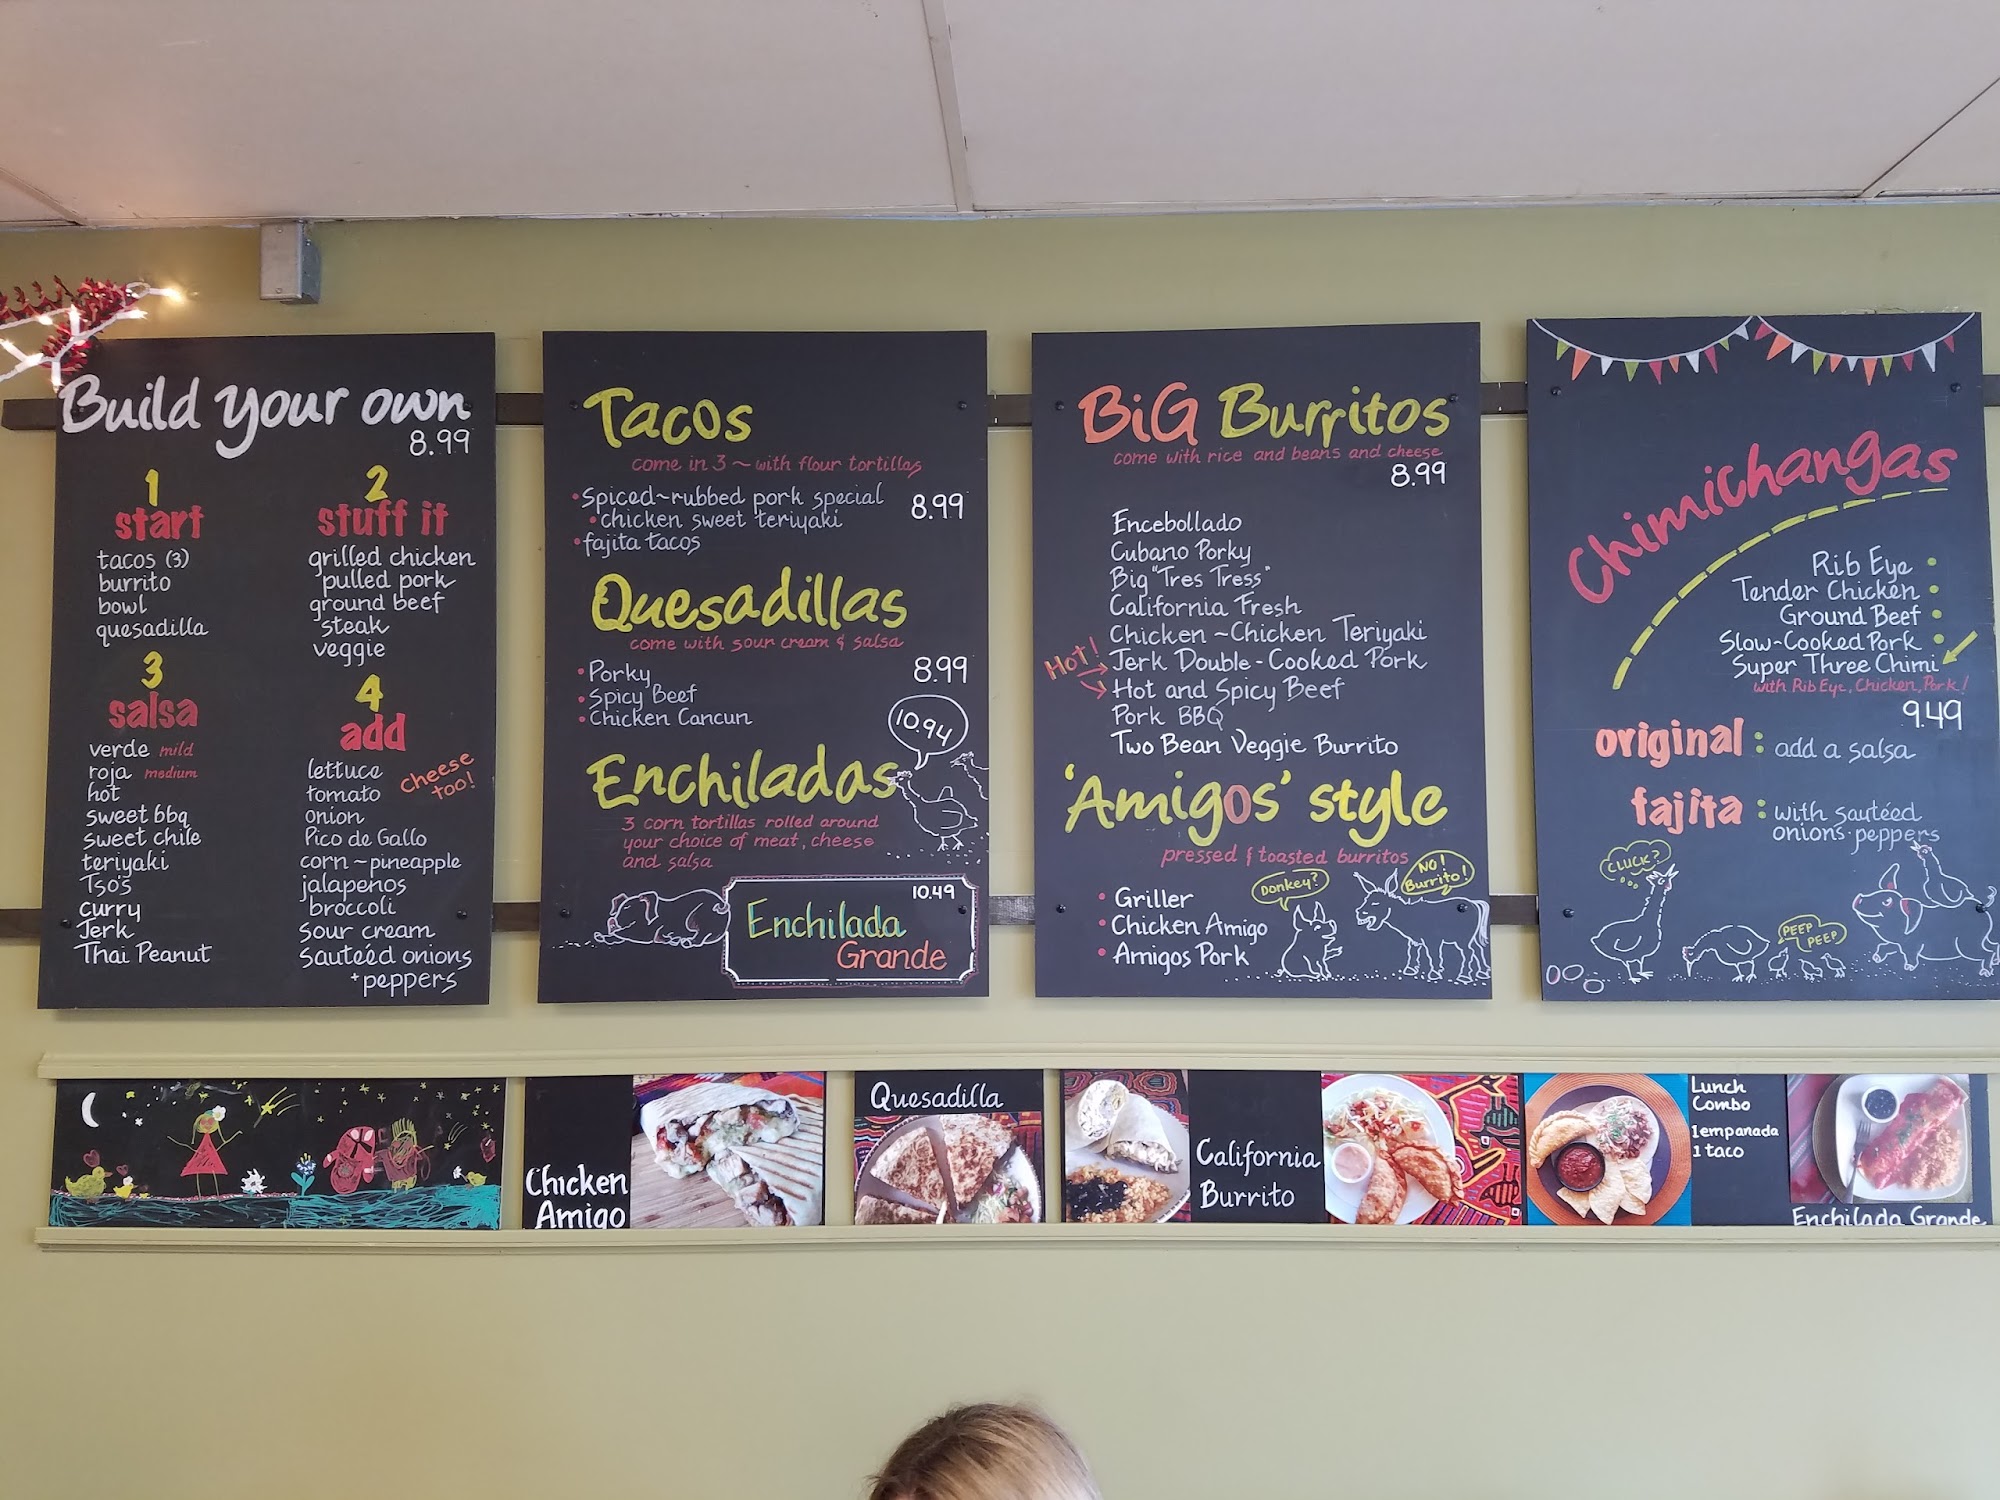 Build your own
8.99
1
start
tacos (3)
burrito
bowl
quesadilla
2
stuff it
grilled chicken
pulled pork
ground beef
steak
veggie
3
salsa
verde mild
roja medium
hot
sweet bbq
sweet chile
teriyaki
Tso's
curry
Jerk
Thai Peanut
4
add
lettuce
tomato
onion
Pico de Gallo
corn~pineapple
jalapenos
broccoli
sour cream
Sauteéd onions
+peppers
cheese
too!
Tacos
come in 3 ~ with flour tortillas
•Spiced~rubbed pork special
•chicken sweet teriyaki
•fajita tacos
8.99
Quesadillas
come with sour cream & salsa
8.99
•Porky
•Spicy Beef
•Chicken Cancun
10.94
Enchiladas
3 corn tortillas rolled around
your choice of meat, cheese
and salsa
10.49
Enchilada
Grande
BiG Burritos
come with rice and beans and cheese
8.99
Encebollado
Cubano Porky
Big "Tres Tress"
California Fresh
Chicken~Chicken Teriyaki
Hot!
Jerk Double-Cooked Pork
Hot and Spicy Beef
Pork BBQ
Two Bean Veggie Burrito
'Amigos' style
pressed & toasted burritos
• Griller
• Chicken Amigo
• Amigos Pork
Donkey?
No!
Burrito!
Chimichangas
Rib Eye •
Tender Chicken •
Ground Beef •
Slow-Cooked Pork •
Super Three Chimi
with Rib Eye, Chicken, Pork!
9.49
original : add a salsa
fajita : with sauteéd
onions·peppers
CLUCK?
PEEP
PEEP
Chicken
Amigo
Quesadilla
California
Burrito
Lunch
Combo
1 empanada
1 taco
Enchilada Grande